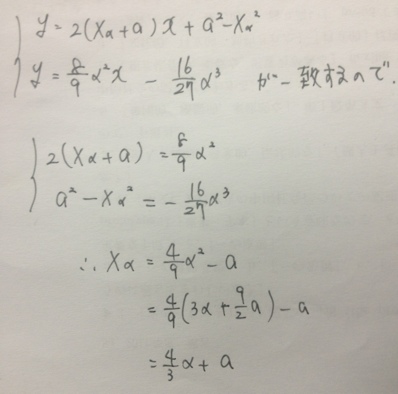 y = 2(Xα + a)x + a² - Xα²
y = 8/9 α²x - 16/27 α³ が一致するので.
2(Xα + a) = 8/9 α²
a² - Xα² = - 16/27 α³
∴ Xα = 4/9 α² - a
= 4/9 (3α + 9/2 a) - a
= 4/3 α + a